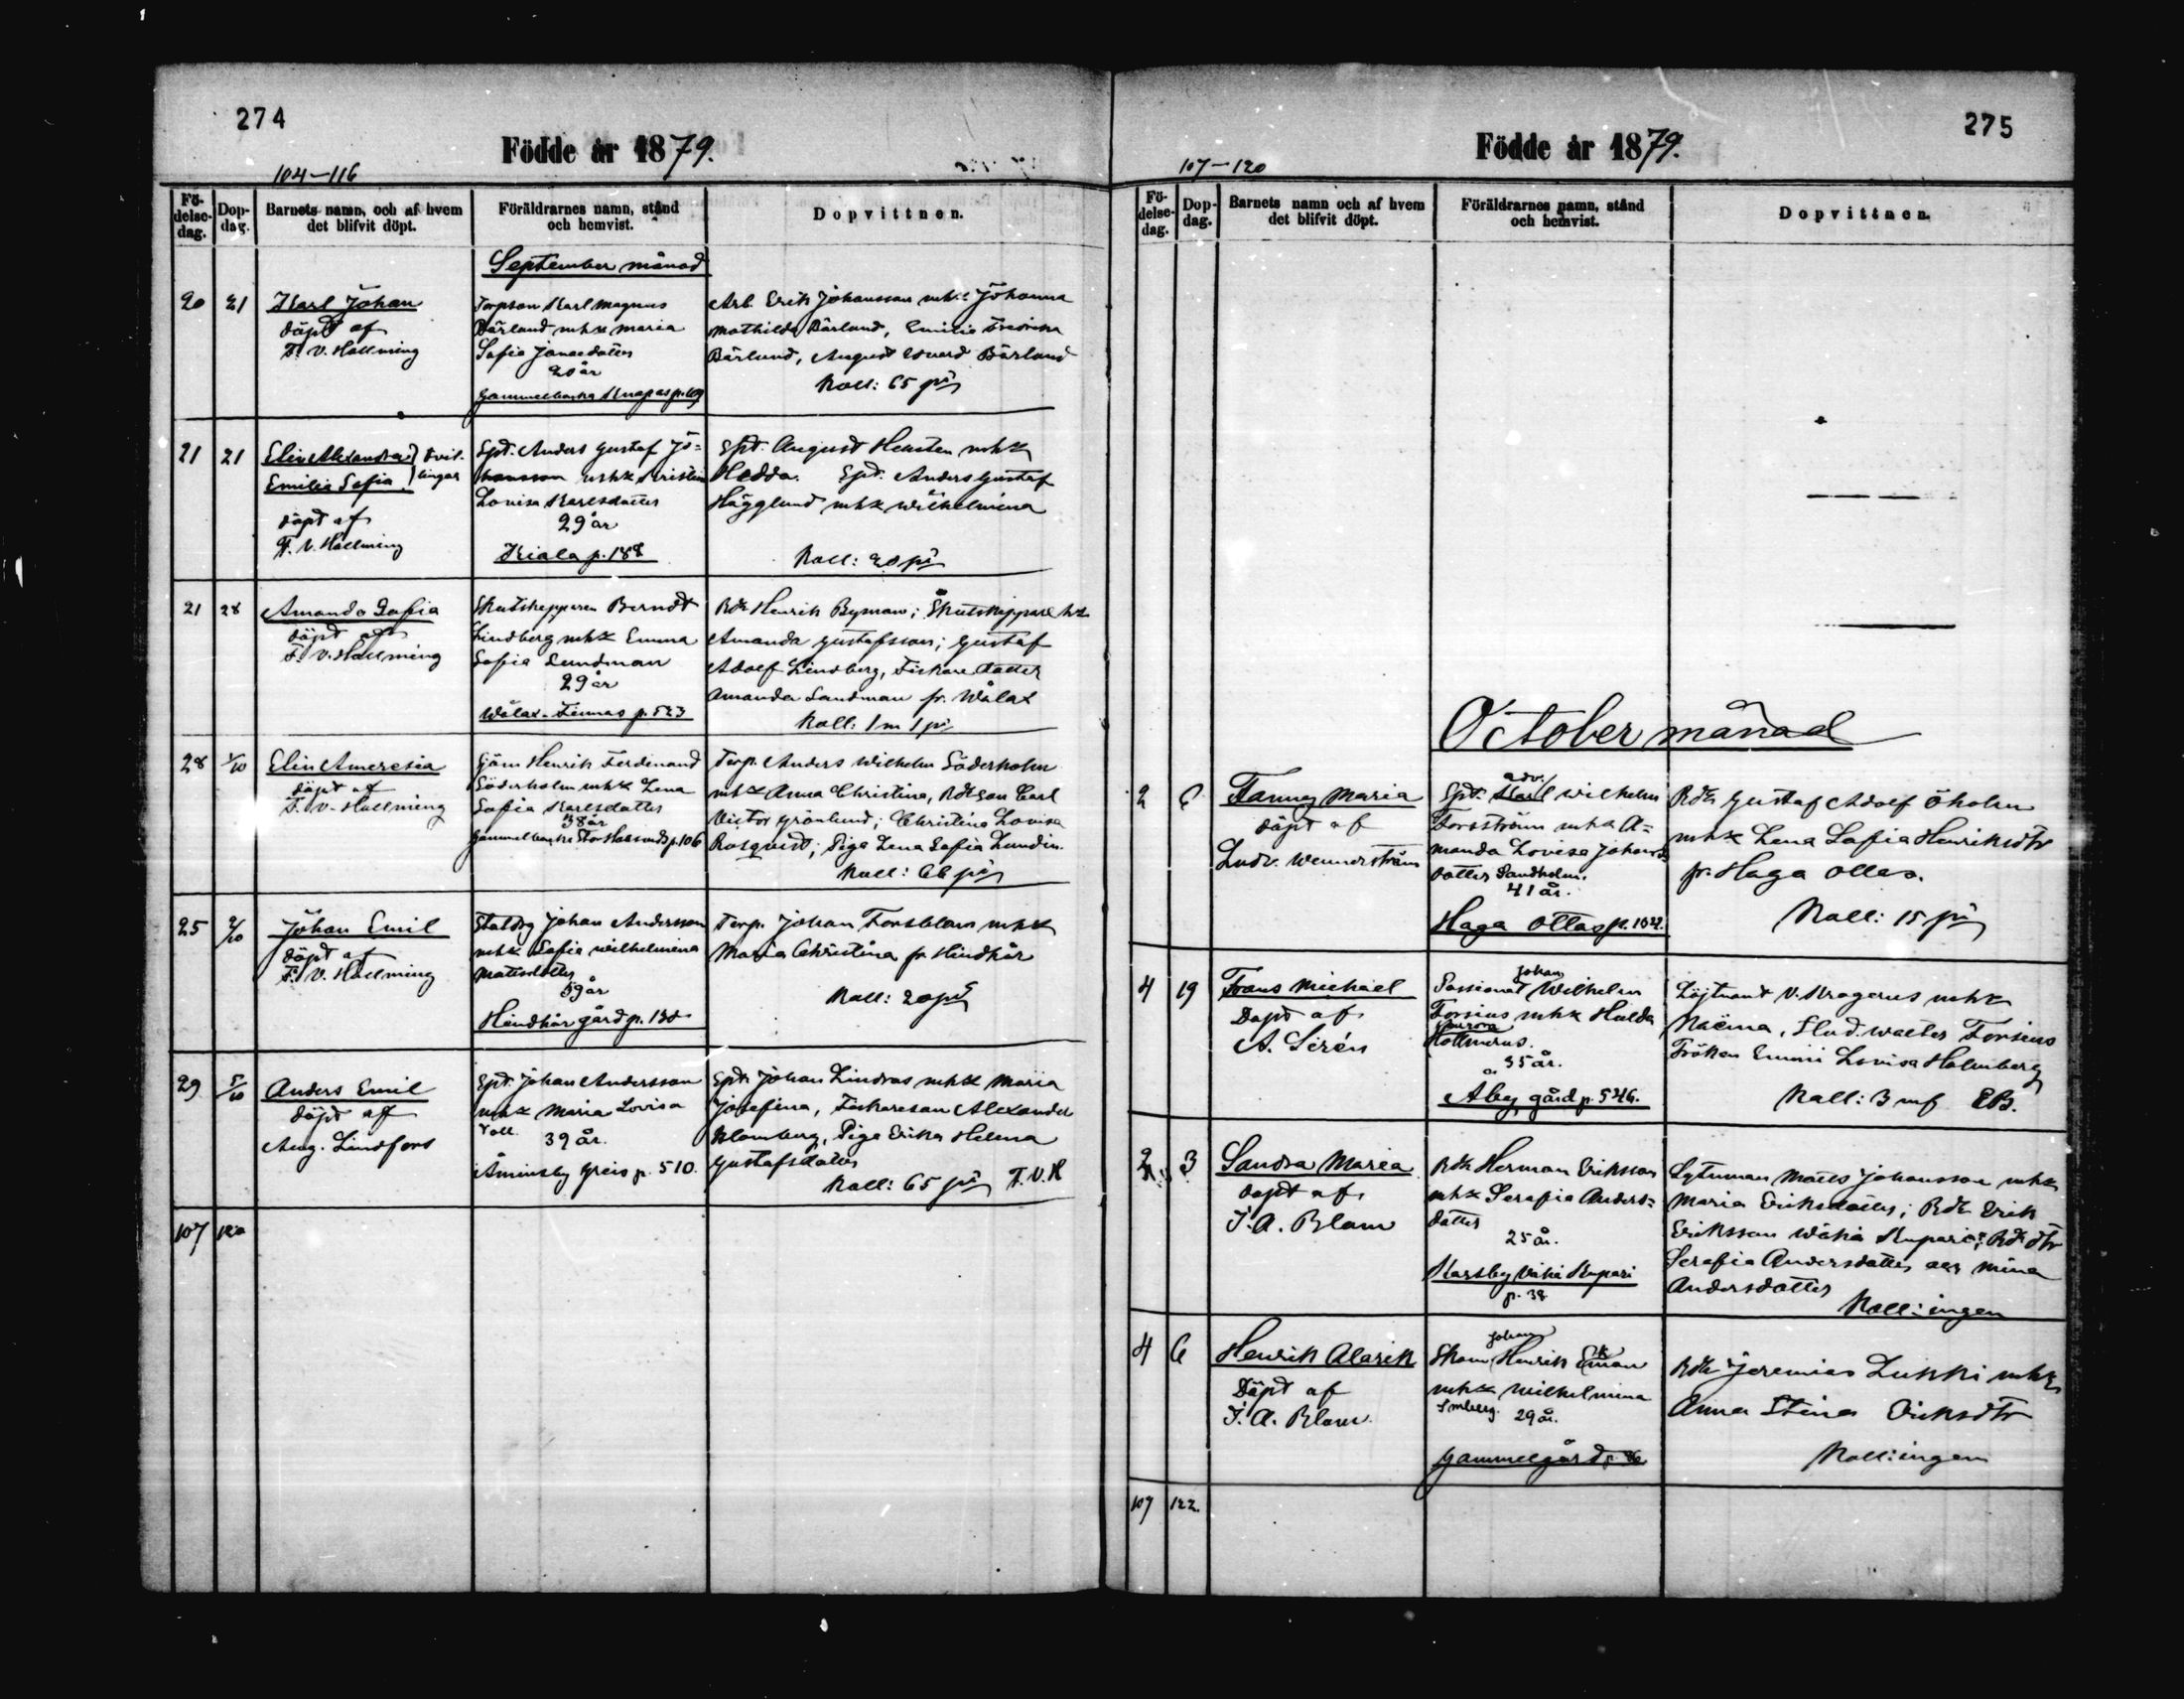 274
Födde år 1879.
104-116
Fö-
delse-
dag.
Dop-
dag.
Barnets namn, och af hvem
det blifvit döpt.
Föräldrarnes namn, stånd
och hemvist.
Dopvittnen.
September månad
20 21
Karl Johan
döpt af
F. V. Hallming
Torpson Karl Magnus
Bärlund mhx Maria
Sofia Jonaedotter
20 år
Gammelbacka Knapas p. 109
Arb. Erik Johansson mhx Johanna
Mathilda Bärlund, Emilia Fredrika
Bärlund, August Edvard Bärlund
Koll: 65 pi
21 21
Elin Alexandra } tvil-
Emilia Sofia } lingar
döpt af
F. V. Hallming
Spt. Anders Gustaf Jo-
hansson mhx Kristina
Lovisa Karlsdotter
29 år
Kiala p. 188
Spt. August Hensten mhx
Hedda. Spt. Anders Gustaf
Hägglund mhx Wilhelmina
Koll: 20 pi
21 28
Amanda Sofia
döpt af
F. V. Hallming
Skutskepparen Berndt
Lindberg mhx Emma
Sofia Sundman
29 år
Wålax-Finnas p. 523
Bdk Henrik Byman; Skutskeppare hx
Amanda Gustafsson; Gustaf
Adolf Lindberg, Fiskare dotter
Amanda Sandman fr. Wålax
Koll: 1 m 1 pi
28 1/10
Elin Ameresia
döpt af
F. V. Hallming
Gjäm Henrik Ferdinand
Söderholm mhx Lena
Sofia Karlsdotter
38 år
Gammelbacka Stor Hassunds p. 106
Torp. Anders Wilhelm Söderholm
mhx Anna Christina, Bdkson Carl
Victor Grönlund; Christina Lovisa
Rosqvist; Piga Lena Sofia Lundin.
Koll: 66 pi
25 2/10
Johan Emil
döpt af
F. V. Hallming
Staldrg Johan Andersson
mhx Sofia Wilhelmina
Mattsdotter
39 år
Hindhår gård p. 130
Torp. Johan Forsblom mhx
Maria Christina fr Hindhår
Koll: 20 pi
29 5/10
Anders Emil
döpt af
Aug. Lindfors
Spt. Johan Andersson
mhx Maria Lovisa
Voll
39 år.
Åminsby Greis p. 510.
Spt. Johan Lindroos mhx Maria
Josefina, Fiskareson Alexander
Blomberg, Piga Erika Helena
Gustafsdotter
Koll: 65 pi F. V. H
107 120
275
Födde år 1879.
107-120
Fö-
delse-
dag.
Dop-
dag.
Barnets namn och af hvem
det blifvit döpt.
Föräldrarnes namn, stånd
och hemvist.
Dopvittnen.
October månad
2 6
Fanny Maria
döpt af
Ludv. Wennerström
Spt. Karl Wilhelm
Forsström mhx A-
manda Lovisa Johans-
dotter Sandholm.
41 år.
Haga Ollas p. 1022.
Bdk Gustaf Adolf Öholm
mhx Lena Sofia Henriksdtr
fr. Haga Ollas.
Koll: 15 pi
4 19
Frans Michael
Döpt af
A. Sirén
Johan
Possionat Wilhelm
Forsius mhx Hulda
Aurora
Hollmerus.
35 år.
Åby gård p. 546.
Löjtnant V. Kragerus mhx
Naëma, Stud. Walter Forsius
Fröken Emmi Lovisa Holmberg
Koll: 3 mf EB.
2 3
Sandra Maria
döpt af
J. A. Blom
Bdk Herman Eriksson
mhx Serafia Anders-
dotter
25 år.
Karsby Vähä Kupari
p. 38
Sytning Matts Johansson mhx
Maria Eriksdotter; Bdk Erik
Eriksson Wähä Kupari; Bdk dtr
Serafia Andersdotter och Mina
Andersdotter
Koll: ingen
4 6
Henrik Alarik
Döpt af
J. A. Blom
Johan
Skom Henrik Ekman
mhx Wilhelmina
Smberg. 29 år.
Gammelgård p. 86
Bdk Jeremias Lukki mhx
Anna Stina Eriksdtr
Koll: ingen
109 122.